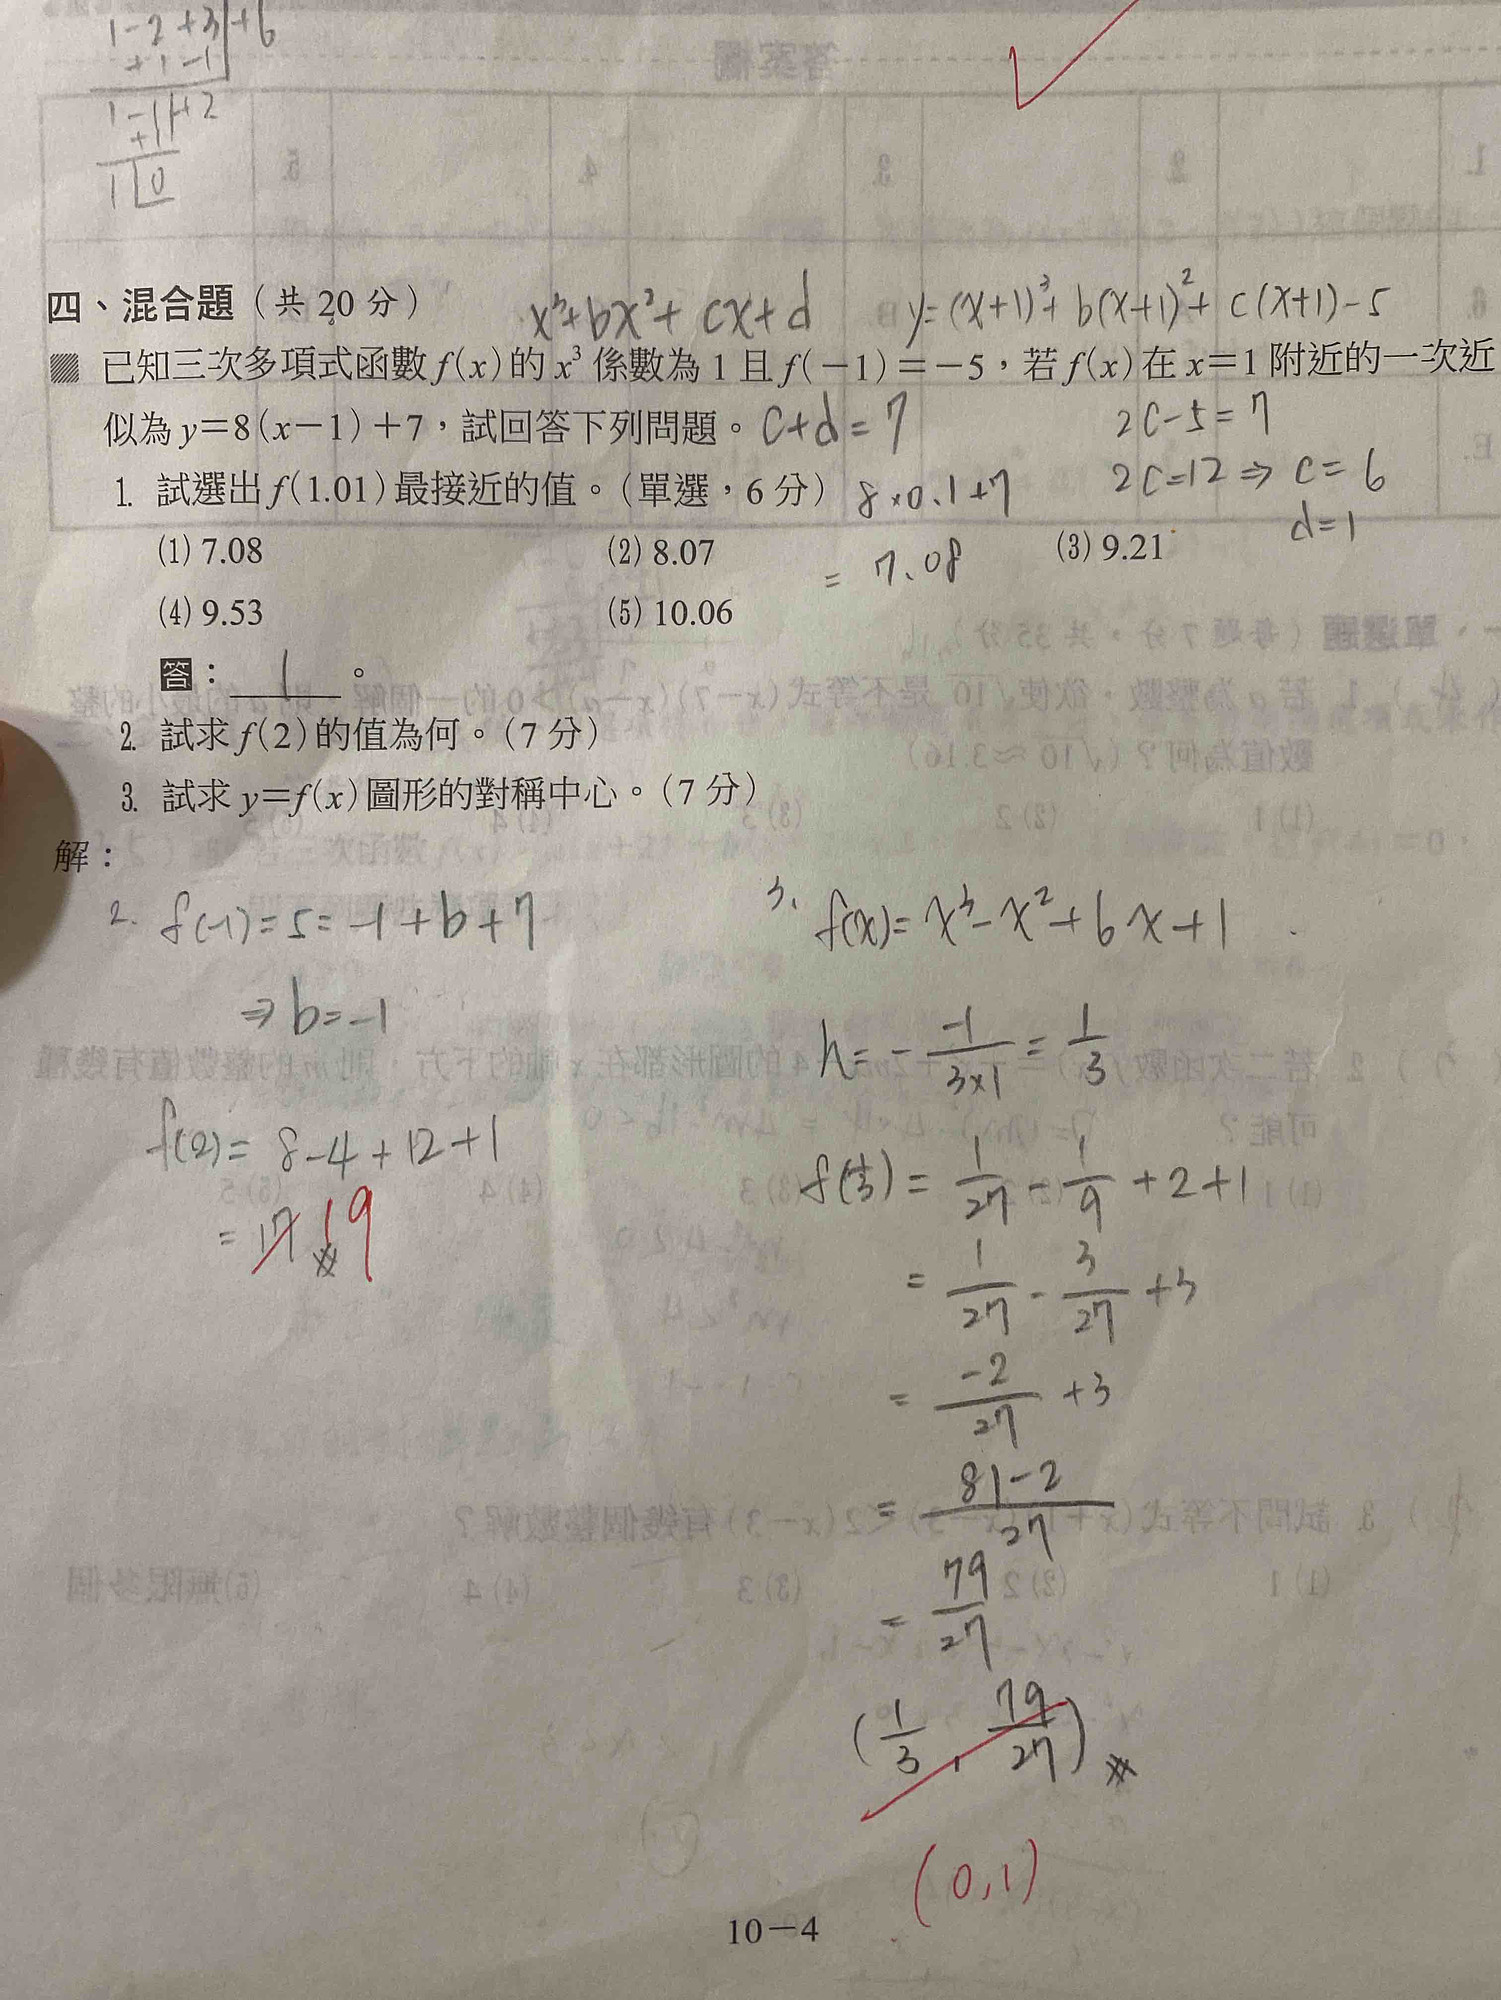 1-2+3 +6
+1-1
1-1 +2
+1
1 0
四、混合題（共 20 分）
x³+bx²+cx+d
y=(x+1)³+b(x+1)²+c(x+1)-5
已知三次多項式函數 f(x) 的 x³ 係數為 1 且 f(-1)=-5，若 f(x) 在 x=1 附近的一次近
似為 y=8(x-1)+7，試回答下列問題。
c+d=7
2c-5=7
2c=12⇒c=6
d=1
1. 試選出 f(1.01) 最接近的值。（單選，6 分）
8×0.1+7
=7.08
(1) 7.08 (2) 8.07 (3) 9.21
(4) 9.53 (5) 10.06
答：1。
2. 試求 f(2) 的值為何。（7 分）
3. 試求 y=f(x) 圖形的對稱中心。（7 分）
解：
2. f(-1)=5=-1+b+7
⇒b=-1
f(2)=8-4+12+1
=17
19
3. f(x)=x³-x²+6x+1
h=-\frac{-1}{3×1}=\frac{1}{3}
f(\frac{1}{3})=\frac{1}{27}-\frac{1}{9}+2+1
=\frac{1}{27}-\frac{3}{27}+3
=\frac{-2}{27}+3
=\frac{81-2}{27}
=\frac{79}{27}
(\frac{1}{3},\frac{79}{27})
(0,1)
10－4